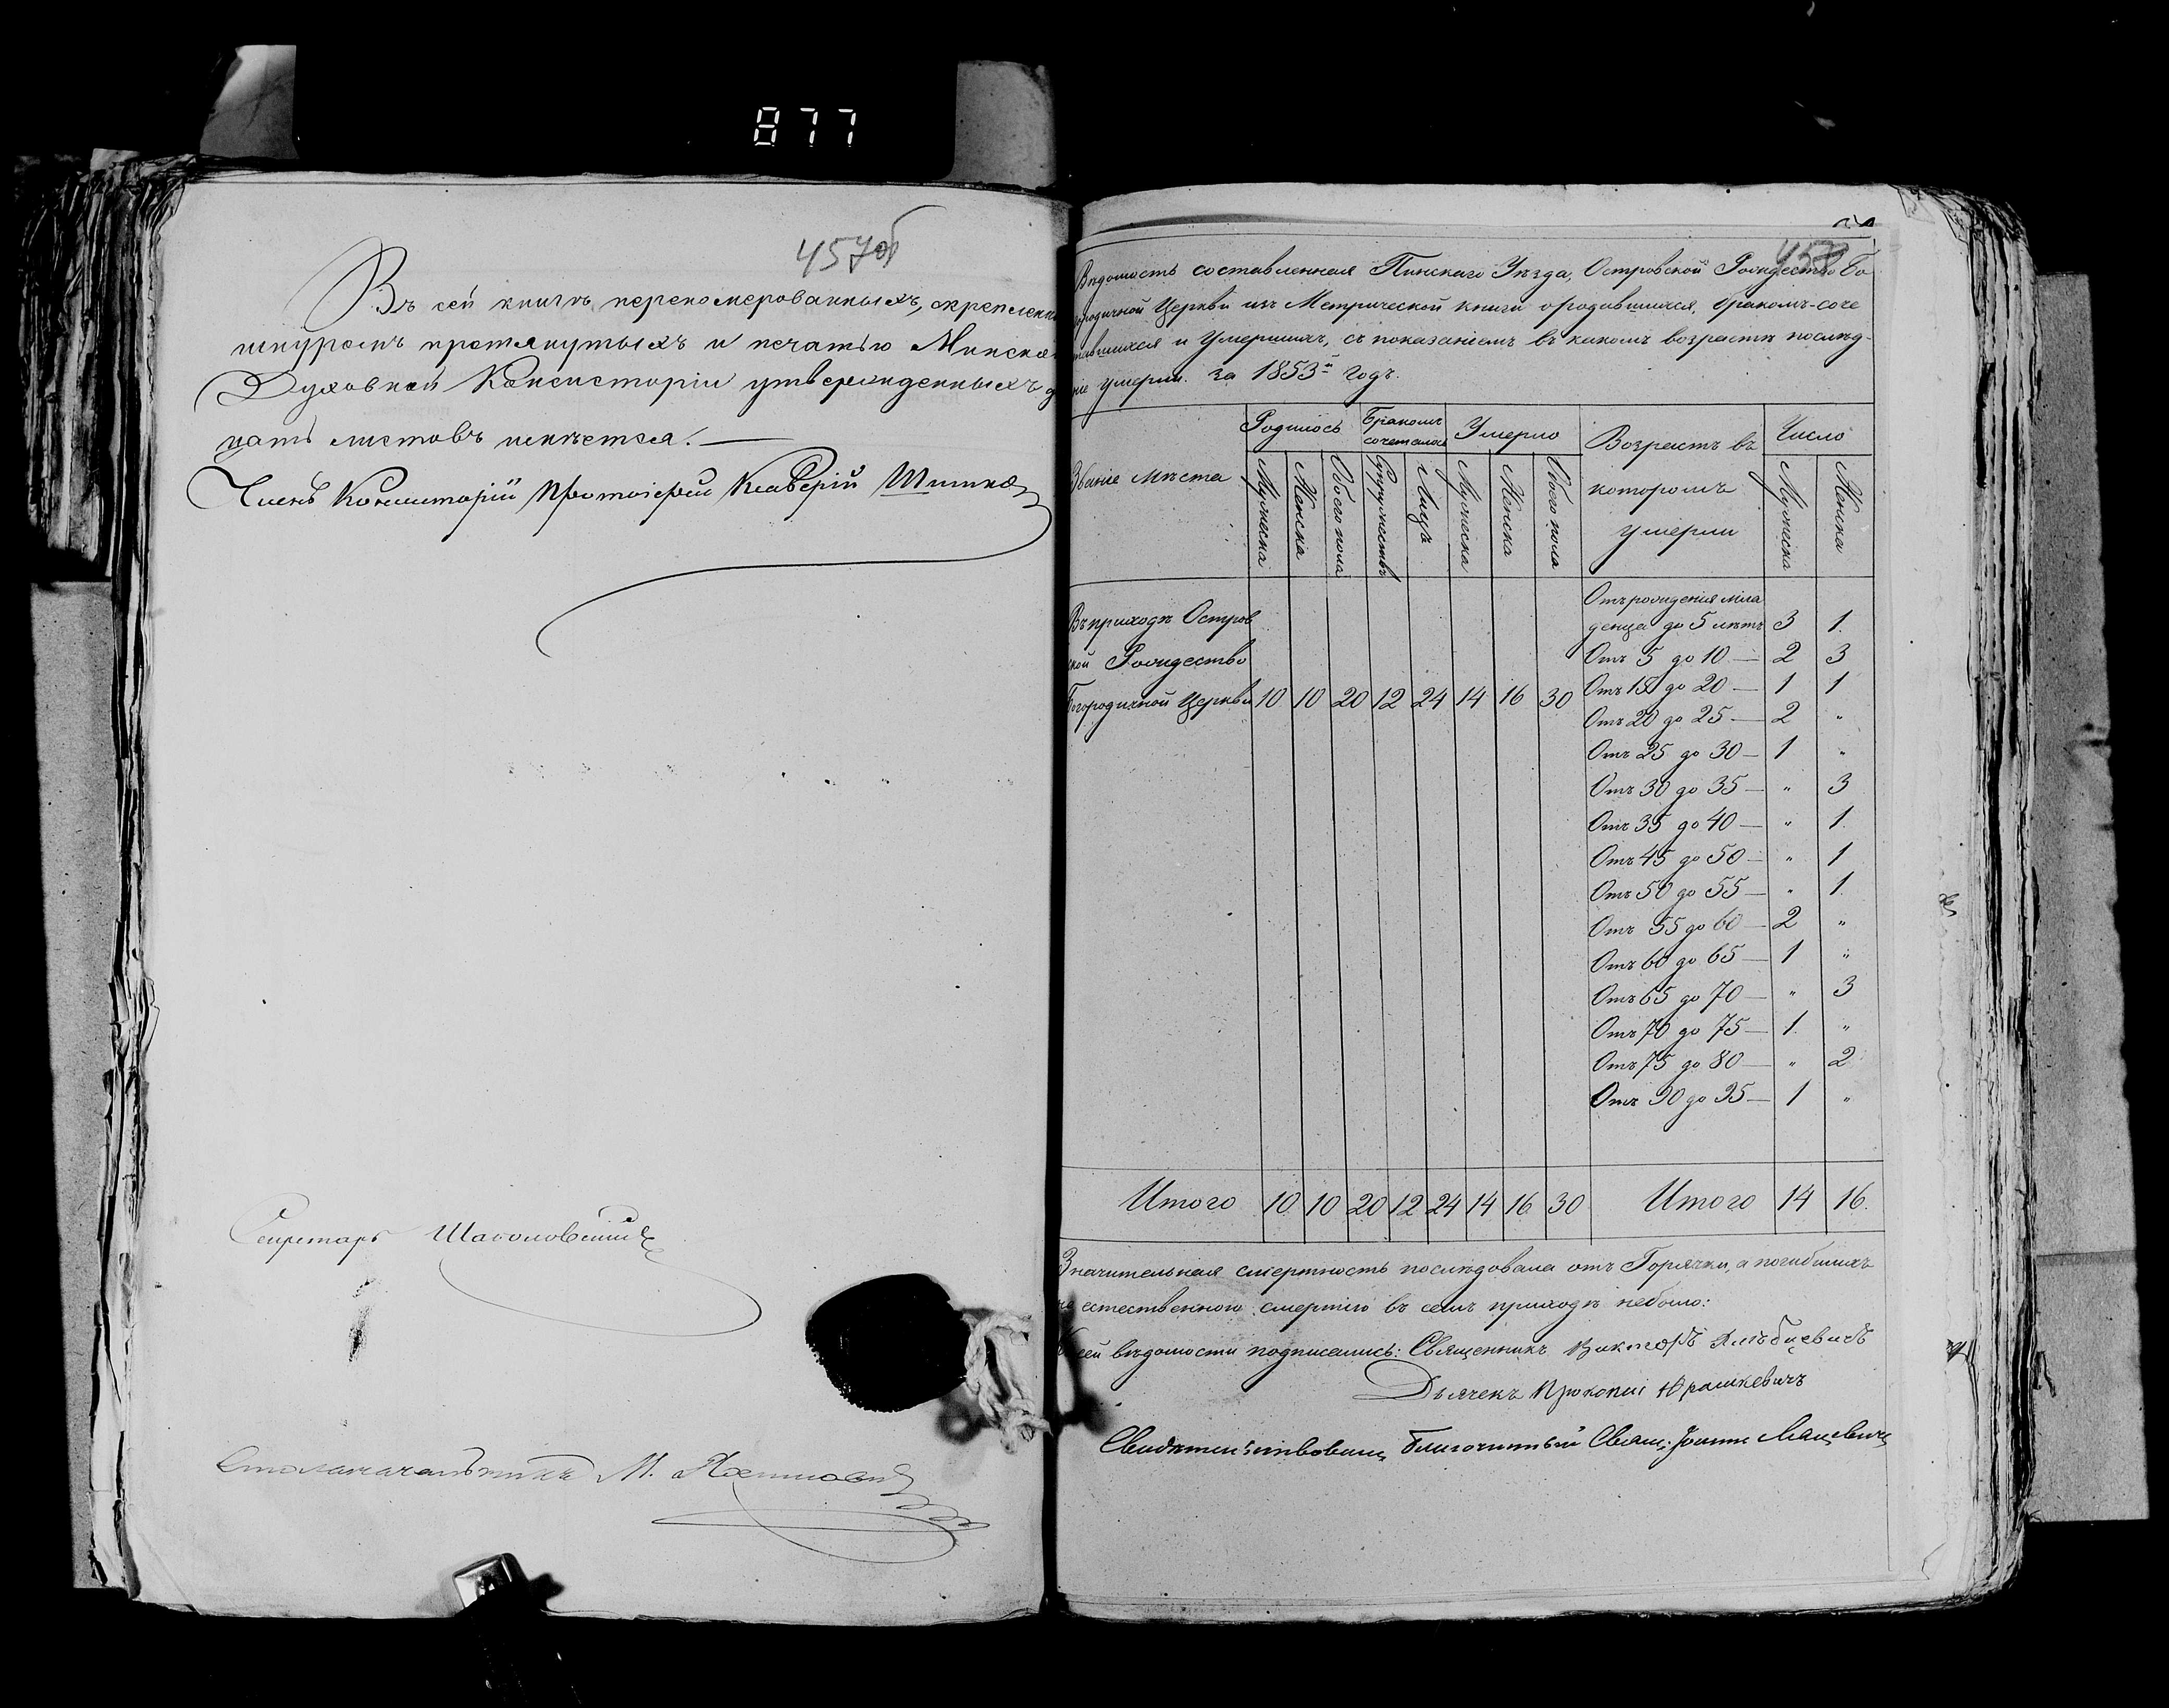 877
457об
Въ сей книгѣ перекомерованныхъ, скрепленн
шнуромъ протянутыхъ и печатью Минской
Духовной Консисторіи утвержденныхъ д
цать листовъ имѣется. —
Членъ Консисторіи Протоіерей Ксаверій
Секретарь
Столоначальникъ М.
458
Вѣдомость составленная Пинскаго Уѣзда, Островской Рождество Бо
городичной Церкви изъ Метрической книги ородившихся, бракомъ-соче
тавшихся и Умершихъ, съ показаніемъ въ какомъ возрастѣ послѣд-
ніе умерли. За 1853й Годъ.
Званіе мѣста Родилось Бракомъ сочеталось Умерло Возрастъ въ которомъ умерли Число
Мужеска Женска Обоего пола Супружествъ Лицъ Мужеска Женска Обоего пола Мужеска Женска
Въ приходѣ Остров
ской Рождество
Богородичной Церкви 10 10 20 12 24 14 16 30
Отъ рожденія мла
денца до 5 лѣтъ 3 1.
Отъ 5 до 10 — 2 3
Отъ 15 до 20 — 1 1
Отъ 20 до 25 — 2 "
Отъ 25 до 30 — 1 "
Отъ 30 до 35 — " 3
Отъ 35 до 40 — " 1.
Отъ 45 до 50 — " 1
Отъ 50 до 55 — " 1.
Отъ 55 до 60 — 2 "
Отъ 60 до 65 — 1 "
Отъ 65 до 70 — " 3
Отъ 70 до 75 — 1. "
Отъ 75 до 80 — " 2
Отъ 90 до 95 — 1 "
Итого 10 10 20 12 24 14 16 30 Итого 14 16.
Значительная смертность послѣдовала отъ Горячки, а погибшихъ
не естественною смертію въ семъ приходѣ небыло:
Къ сей вѣдомости подписались: Священникъ Викторъ
Дьячекъ Прокопій Юрашкевичъ
Свидѣтельствовалъ Благочинный Свящ: Іоаннъ Мацевичъ